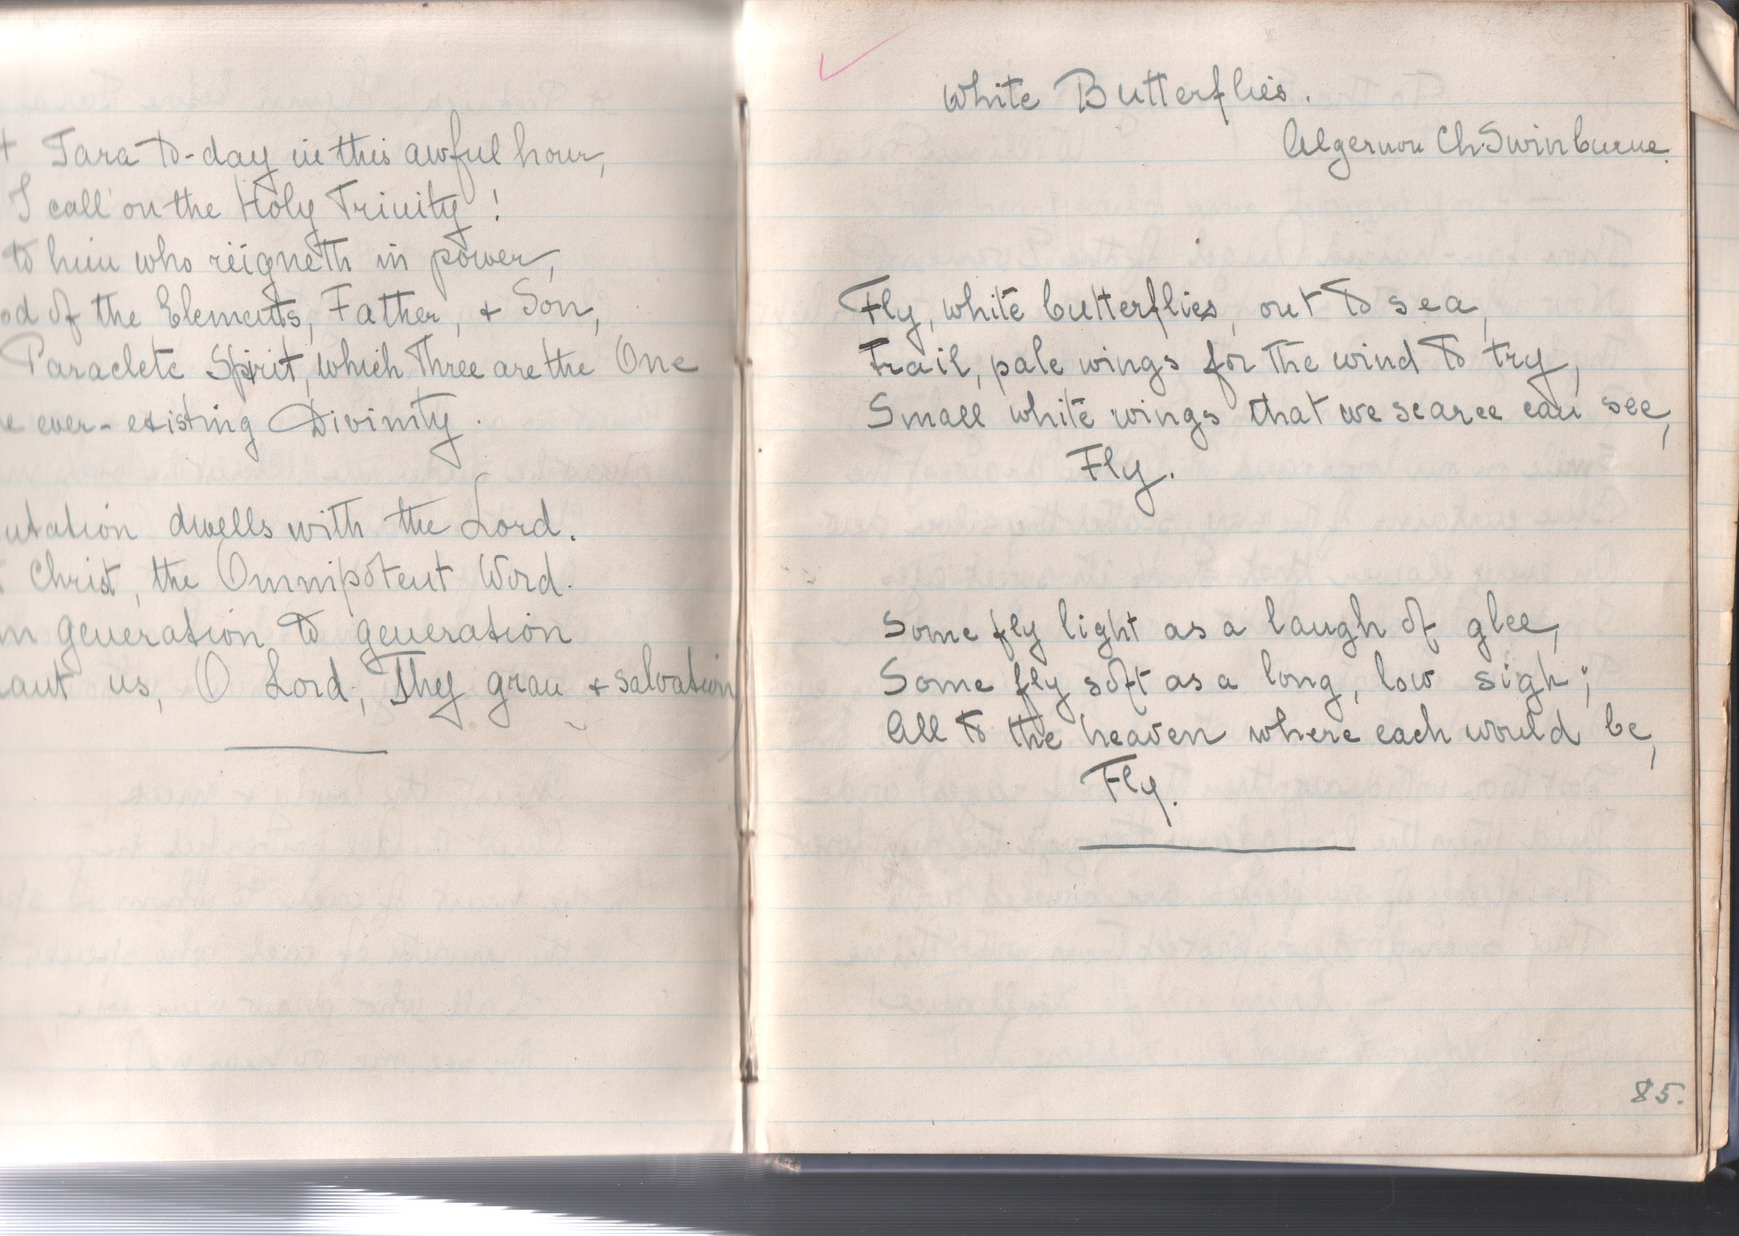 Tara to-day in this awful hour,
I call on the Holy Trinity!
to him who reigneth in power,
od of the Elements, Father, + Son,
Paraclete Spirit, which Three are the One
e ever-existing Divinity.
utation dwells with the Lord.
Christ, the Omnipotent Word.
m generation to generation
aut us, O Lord, Thy grau + salvation
White Butterflies.
Algernon Ch. Swinburne.
Fly, white butterflies, out to sea,
Frail, pale wings for the wind to try,
Small white wings that we scarce can see,
Fly.
Some fly light as a laugh of glee,
Some fly soft as a long, low sigh;
All to the heaven where each would be,
Fly.
85.